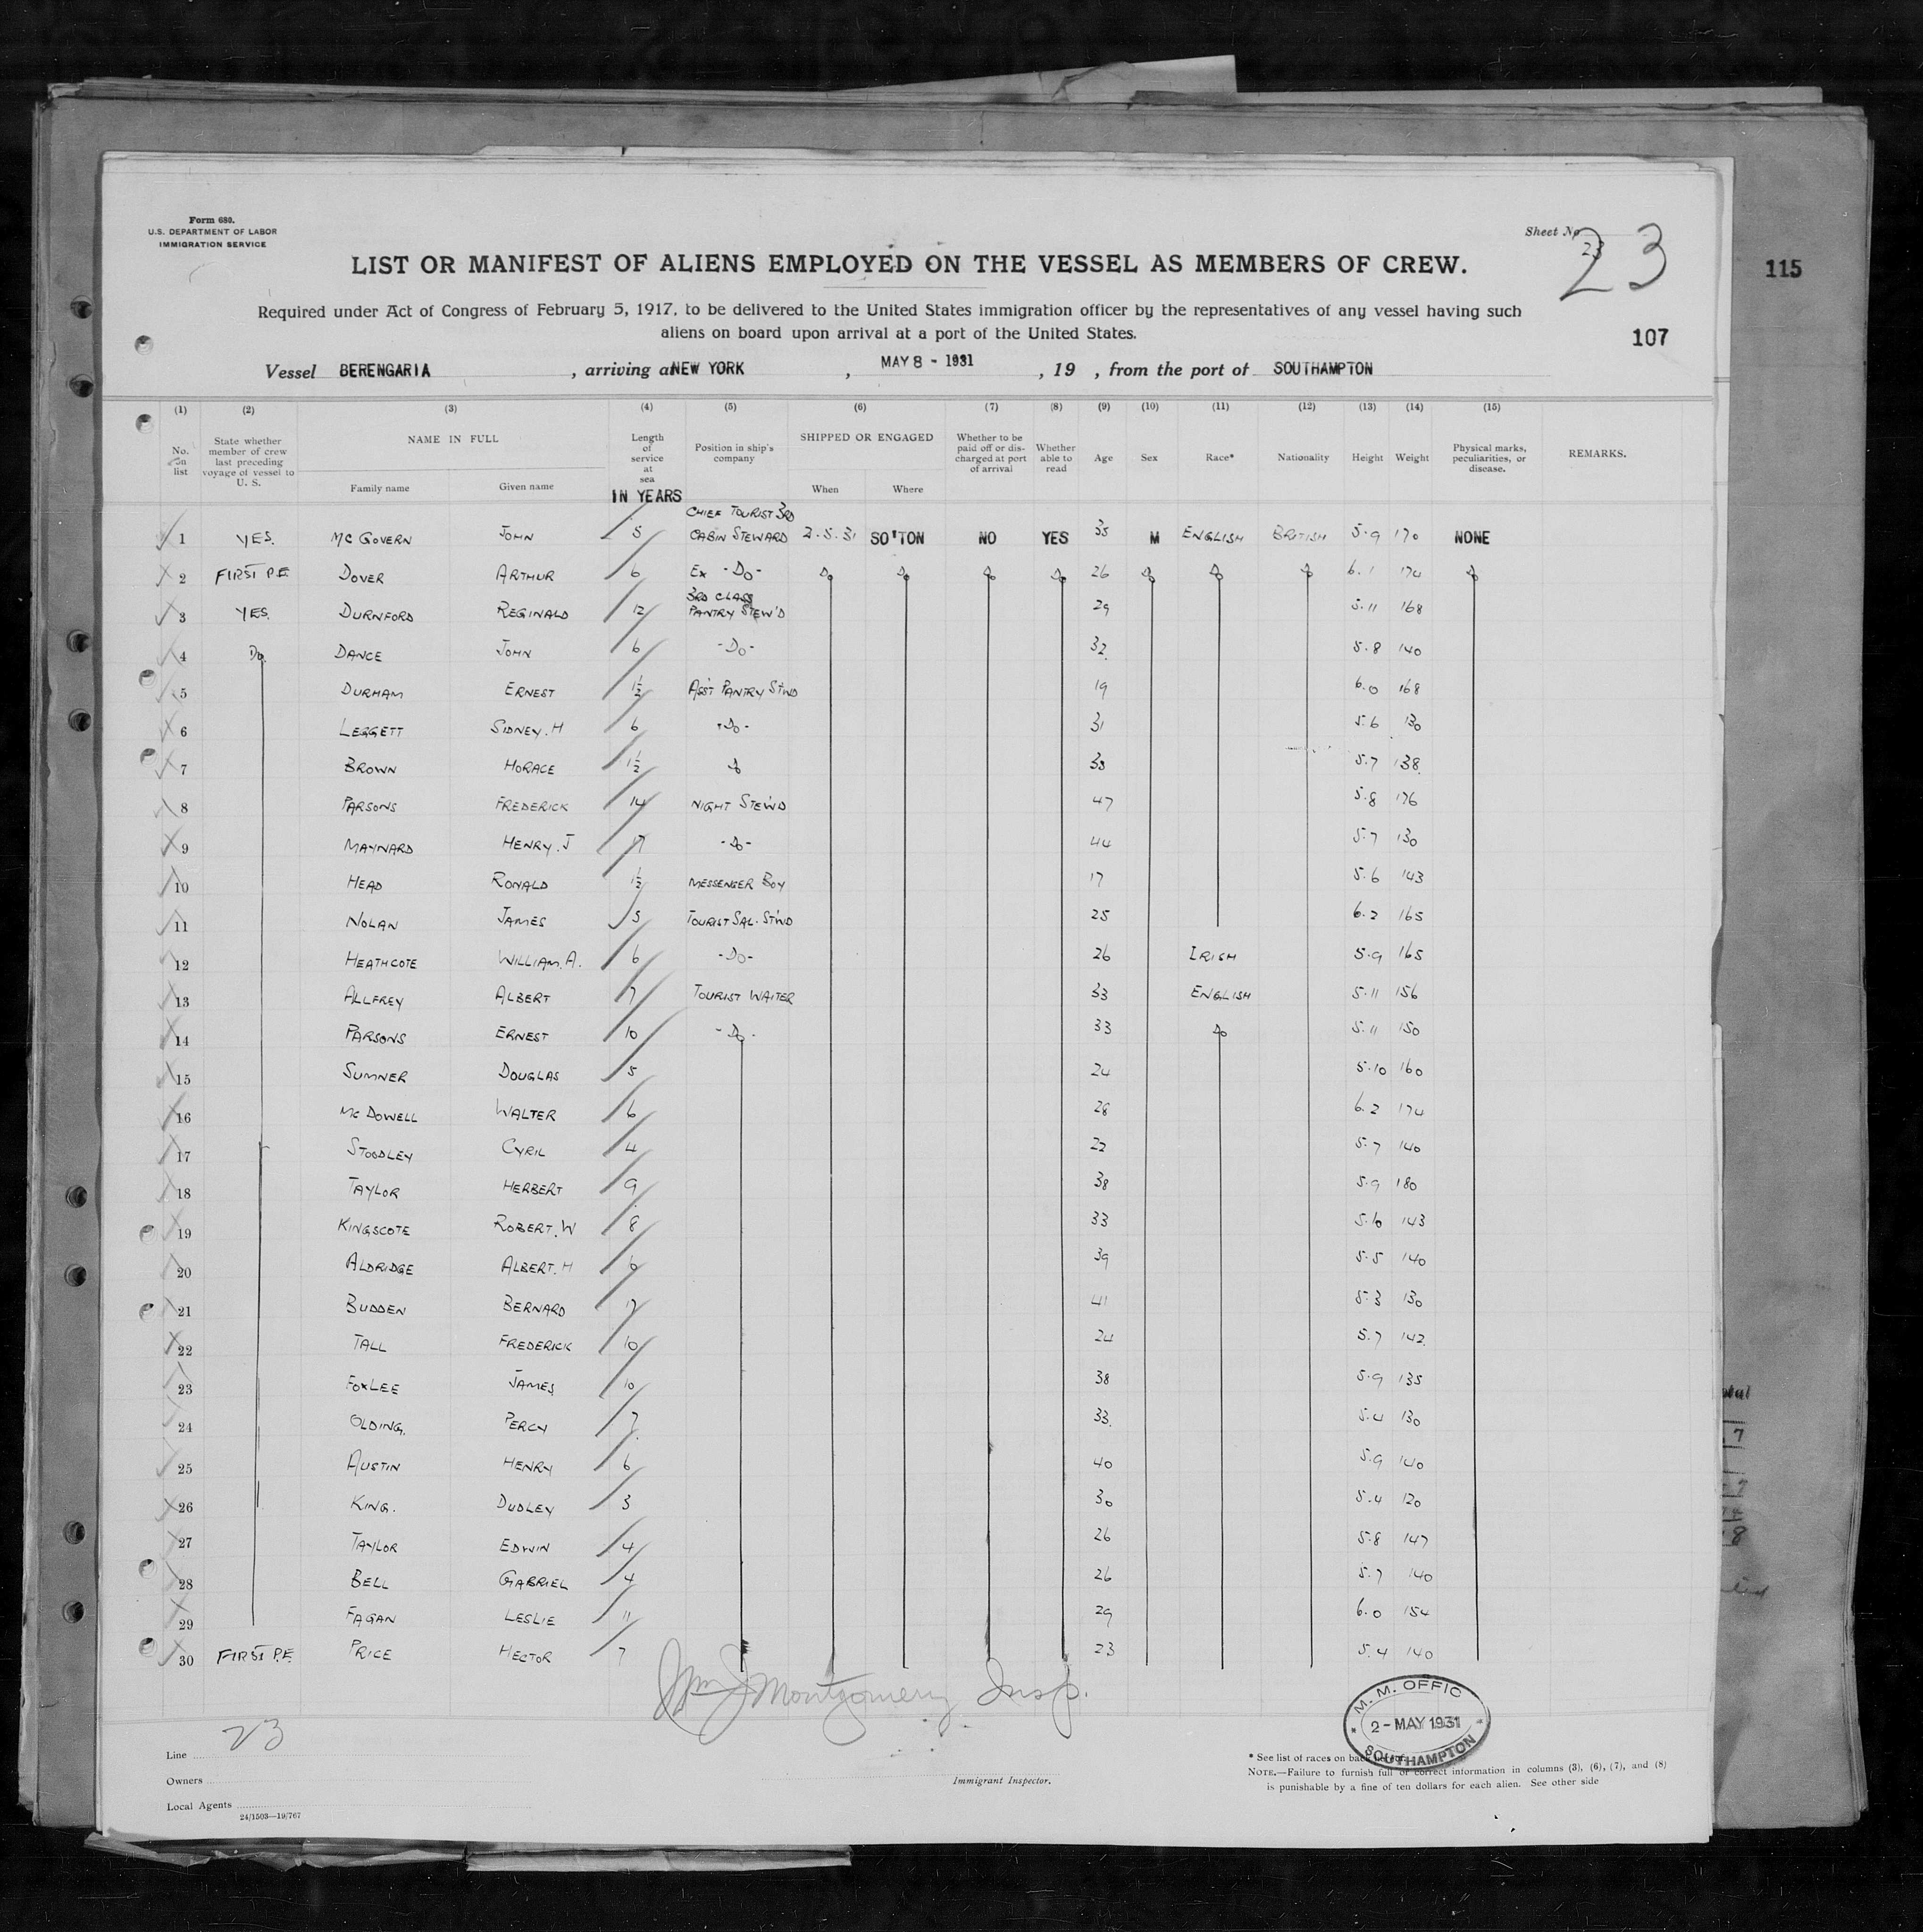 Form 680.
U.S. DEPARTMENT OF LABOR
IMMIGRATION SERVICE
Sheet No. 23
23
115
LIST OR MANIFEST OF ALIENS EMPLOYED ON THE VESSEL AS MEMBERS OF CREW.
Required under Act of Congress of February 5, 1917, to be delivered to the United States immigration officer by the representatives of any vessel having such
aliens on board upon arrival at a port of the United States.
107
Vessel BERENGARIA , arriving at NEW YORK , MAY 8 - 1931 , 19 , from the port of SOUTHAMPTON
(1) (2) (3) (4) (5) (6) (7) (8) (9) (10) (11) (12) (13) (14) (15)
No. on list State whether member of crew last preceding voyage of vessel to U. S. NAME IN FULL Family name Given name Length of service at sea IN YEARS Position in ship's company SHIPPED OR ENGAGED When Where Whether to be paid off or discharged at port of arrival Whether able to read Age Sex Race* Nationality Height Weight Physical marks, peculiarities, or disease. REMARKS.
1 YES. MC GOVERN JOHN 5 CHIEF TOURIST 3RD CABIN STEWARD 2.5.31 SO'TON NO YES 35 M ENGLISH BRITISH 5.9 170 NONE
2 FIRST P.E. DOVER ARTHUR 6 EX -DO- DO DO DO DO 26 DO DO DO 6.1 174 DO
3 YES. DURNFORD REGINALD 12 3RD CLASS PANTRY STEW'D 29 5.11 168
4 DO. DANCE JOHN 6 -DO- 32 5.8 140
5 DURHAM ERNEST 1½ ASS'T PANTRY ST'WD 19 6.0 168
6 LEGGETT SIDNEY. H 6 -DO- 31 5.6 130
7 BROWN HORACE 1½ DO 30 5.7 138
8 PARSONS FREDERICK 14 NIGHT STEW'D 47 5.8 176
9 MAYNARD HENRY. J 17 -DO- 44 5.7 130
10 HEAD RONALD 1½ MESSENGER BOY 17 5.6 143
11 NOLAN JAMES 5 TOURIST SAL. ST'WD 25 6.2 165
12 HEATHCOTE WILLIAM. A. 6 -DO- 26 IRISH 5.9 165
13 ALLFREY ALBERT 7 TOURIST WAITER 33 ENGLISH 5.11 156
14 PARSONS ERNEST 10 -DO- 33 DO 5.11 150
15 SUMNER DOUGLAS 5 24 5.10 160
16 MC DOWELL WALTER 6 28 6.2 174
17 STOODLEY CYRIL 4 22 5.7 140
18 TAYLOR HERBERT 9 38 5.9 180
19 KINGSCOTE ROBERT. W 8 33 5.6 143
20 ALDRIDGE ALBERT. H 6 39 5.5 140
21 BUDDEN BERNARD 17 41 5.3 130
22 TALL FREDERICK 10 24 5.7 142
23 FOXLEE JAMES 10 38 5.9 135
24 OLDING. PERCY 7 33. 5.4 130
25 AUSTIN HENRY 6 40 5.9 140
26 KING. DUDLEY 3 30 5.4 120
27 TAYLOR EDWIN 4 26 5.8 147
28 BELL GABRIEL 4 26 5.7 140
29 FAGAN LESLIE 11 29 6.0 154
30 FIRST P.E. PRICE HECTOR 7 23 5.4 140
Wm J Montgomery Insp.
M. M. OFFIC
2 - MAY 1931
SOUTHAMPTON
23
Line
Owners
Local Agents
24/1503—19/767
Immigrant Inspector.
* See list of races on back hereof.
NOTE.—Failure to furnish full or correct information in columns (3), (6), (7), and (8)
is punishable by a fine of ten dollars for each alien. See other side